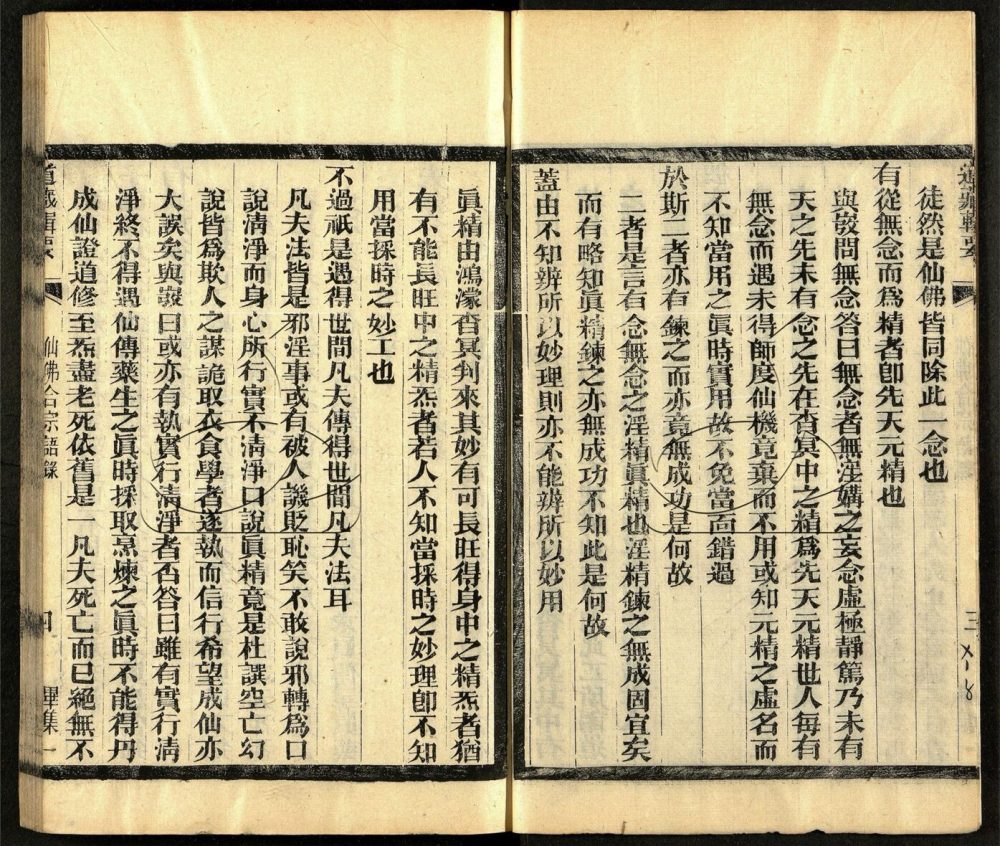 道藏輯要
三
徒然是仙佛皆同除此一念也
有從無念而爲精者卽先天元精也
與㱾問無念答曰無念者無淫媾之妄念虛極靜篤乃未有
天之先未有念之先在杳冥中之精爲先天元精世人每有
無念而遇未得師度仙機竟棄而不用或知元精之虛名而
不知當用之眞時實用故不免當面錯過
於斯二者亦有鍊之而亦竟無成功是何故
二者是言有念無念之淫精眞精也淫精鍊之無成固宜矣
而有略知眞精鍊之亦無成功不知此是何故
蓋由不知辨所以妙理則亦不能辨所以妙用
眞精由鴻濛杳冥判來其妙有可長旺得身中之精炁者猶
有不能長旺中之精炁者若人不知當採時之妙理卽不知
用當採時之妙工也
不過祇是遇得世間凡夫傳得世間凡夫法耳
凡夫法皆是邪淫事或有被人譏貶恥笑不敢說邪轉爲口
說淸淨而身心所行實不淸淨口說眞精竟是杜譔空亡幻
說皆爲欺人之謀詭取衣食學者遂執而信行希望成仙亦
大誤矣與㱾曰或亦有執實行淸淨者否答曰雖有實行淸
淨終不得遇仙傳藥生之眞時採取烹煉之眞時不能得丹
成仙證道修至炁盡老死依舊是一凡夫死亡而已絕無不
道藏輯要
仙佛合宗語錄
四
畢集一